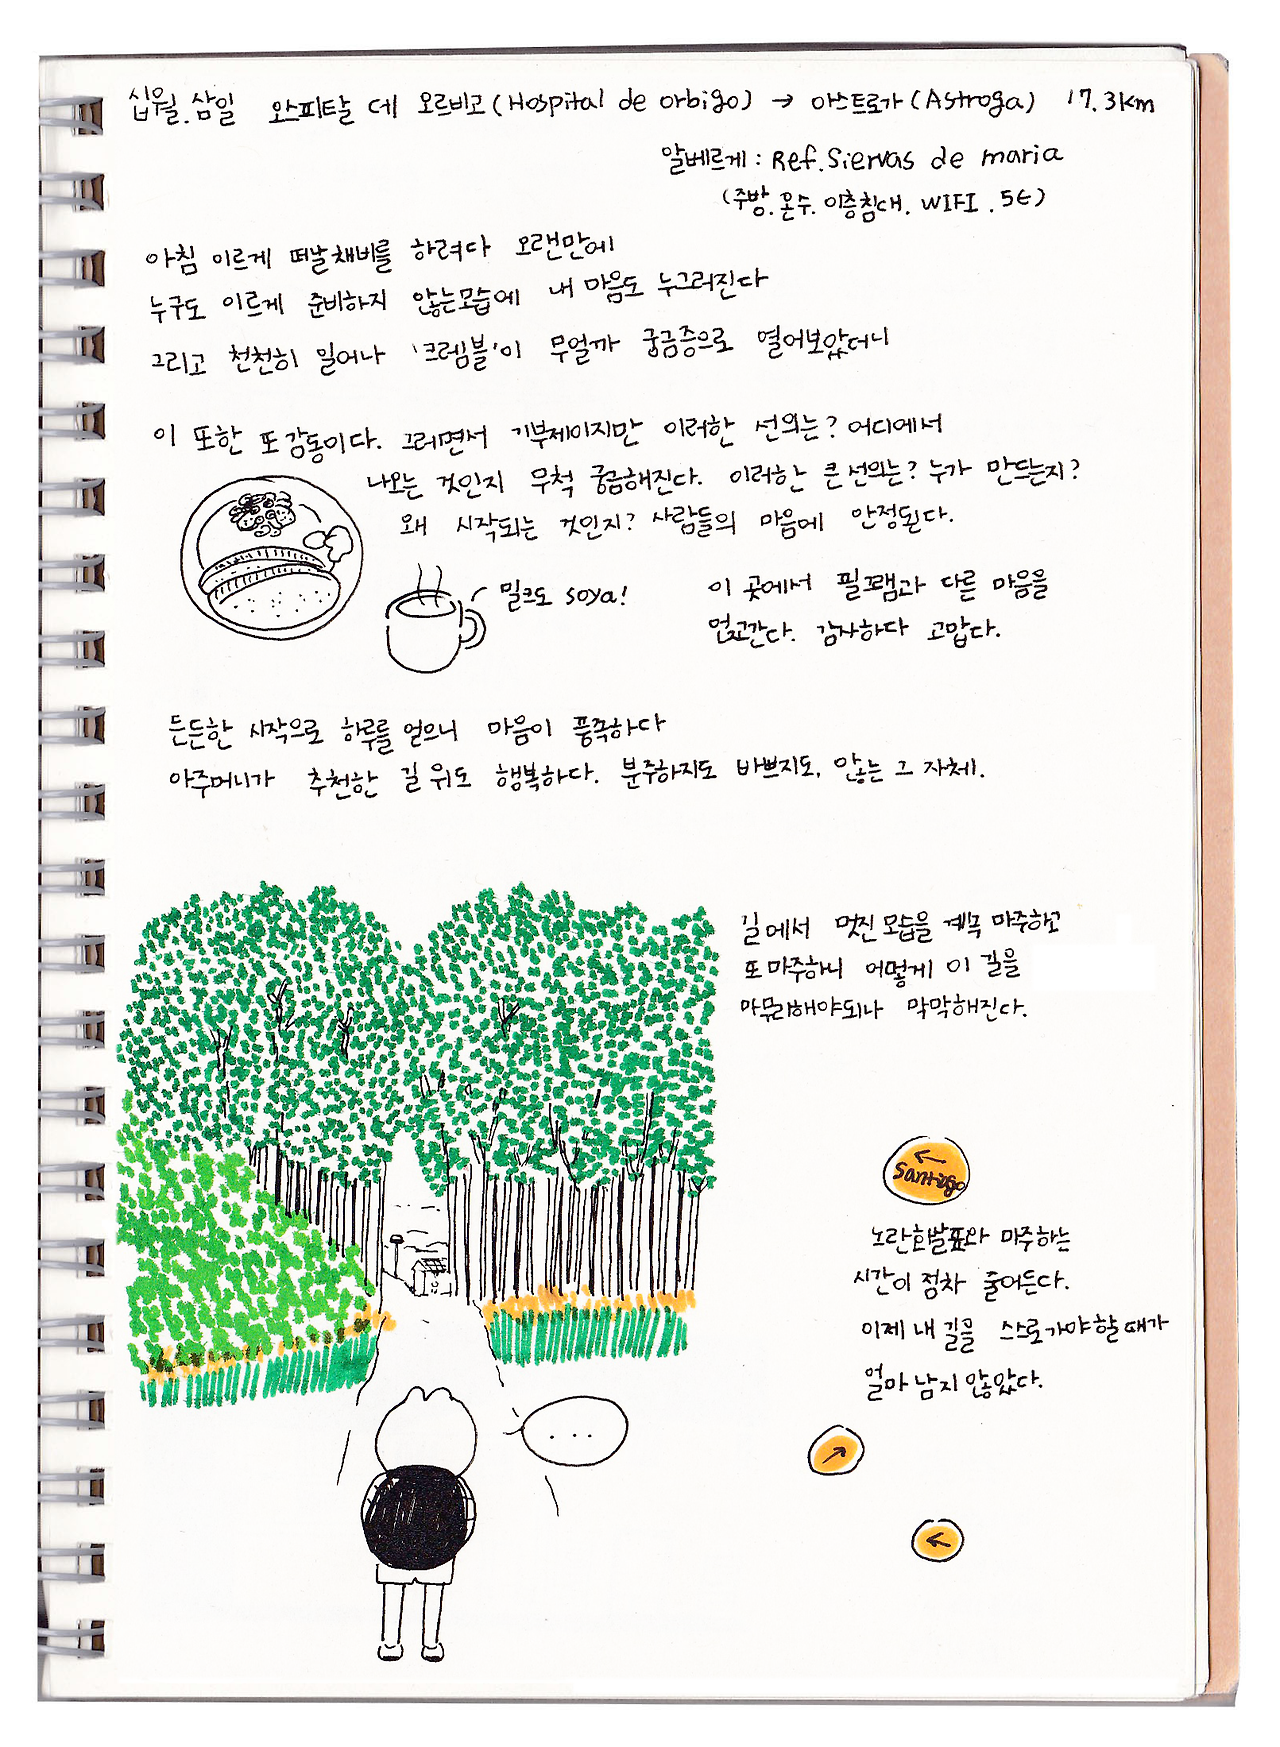 십월.삼일 오스피탈 데 오르비고(Hospital de orbigo) → 아스트로가(Astroga) 17.3km
알베르게 : Ref.Siervas de maria
(주방.온수.이층침대.WIFI.5€)
아침 이르게 떠날채비를 하려다 오랜만에
누구도 이르게 준비하지 않는모습에 내 마음도 누그러진다
그리고 천천히 일어나 '크레셈블'이 무얼까 궁금증으로 열어보았더니
이 또한 또 감동이다. 그러면서 기부제이지만 이러한 선의는? 어디에서
나오는 것인지 무척 궁금해진다. 이러한 큰 선의는? 누가 만드는지?
왜 시작되는 것인지? 사람들의 마음에 안정된다.
밀크도 soya!
이 곳에서 필꼬램과 다른 마음을
얻고간다. 감사하다 고맙다.
든든한 시작으로 하루를 얻으니 마음이 풍족하다
아주머니가 추천한 길 위도 행복하다. 분주하지도 바쁘지도. 않는 그 자체.
길에서 멋진 모습을 계속 마주하고
또 마주하니 어떻게 이 길을
마무리해야되나 막막해진다.
←
Santiago
노란화발표와 마주하는
시간이 점차 줄어든다.
이제 내 길을 스스로가야 할 때가
얼마 남지 않았다.
...
↗
←